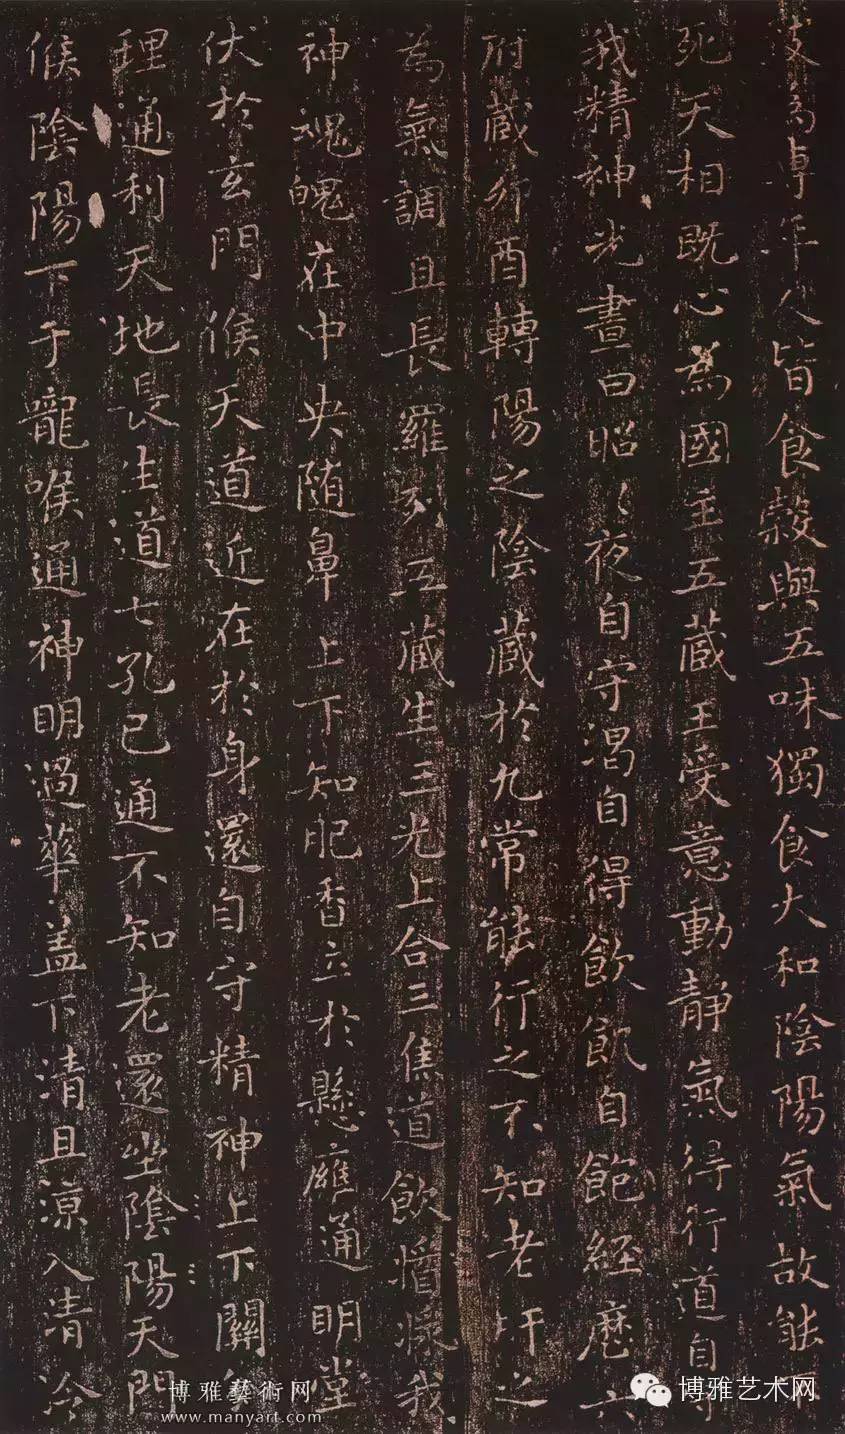 為專年人皆食穀與五味獨食大和陰陽氣故能不
死天相既心為國主五藏王受意動靜氣得行道自守
我精神光晝日昭〻夜自守渴自得飲飢自飽經歷六
府藏卯酉轉陽之陰藏於九常能行之不知老肝之
為氣調且長羅列五藏生三光上合三焦道飲醬漿我
神魂魄在中央随鼻上下知肥香立於懸膺通明堂
伏於玄門候天道近在於身還自守精神上下關
理通利天地長生道七孔已通不知老還坐陰陽天門
候陰陽下于嚨喉通神明過華盖下清且涼入清泠
博雅藝術网
www.manyart.com
博雅艺术网